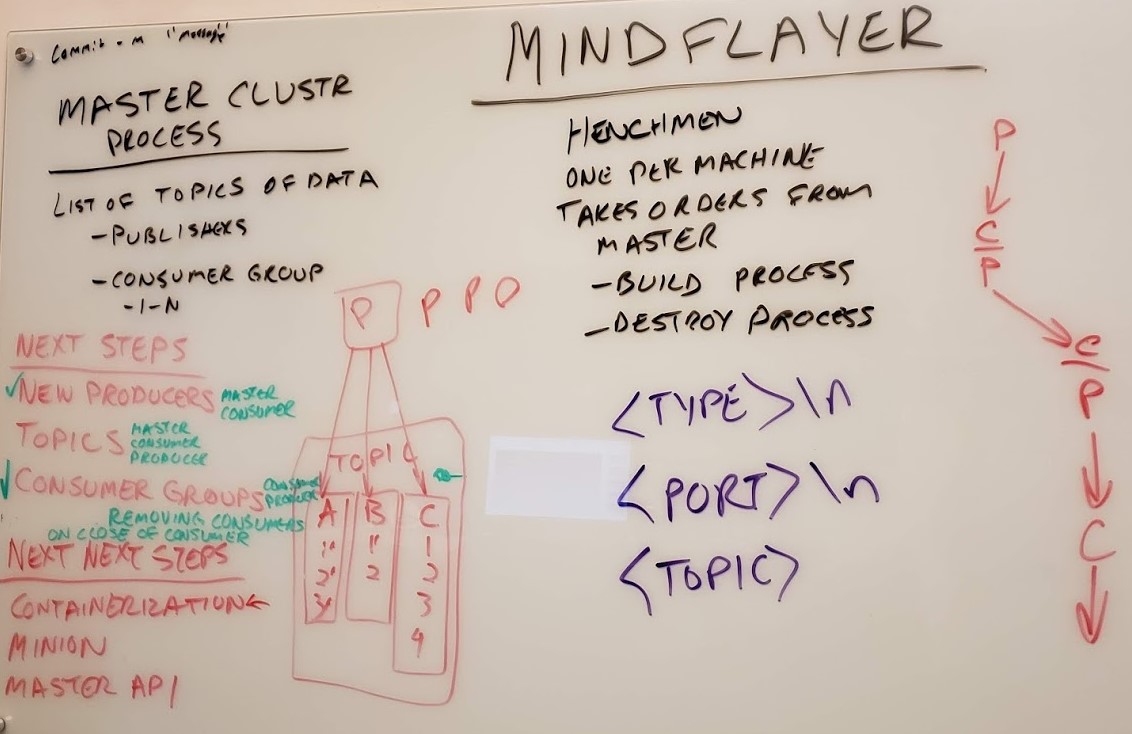 Commit -m "message"
MINDFLAYER
MASTER CLUSTR
PROCESS
LIST OF TOPICS OF DATA
-PUBLISHERS
-CONSUMER GROUP
-1-N
HENCHMEN
ONE PER MACHINE
TAKES ORDERS FROM
MASTER
-BUILD PROCESS
-DESTROY PROCESS
<TYPE>\n
<PORT>\n
<TOPIC>
NEXT STEPS
✓NEW PRODUCERS MASTER
CONSUMER
TOPICS MASTER
CONSUMER
PRODUCER
✓CONSUMER GROUPS CONSUMER
PRODUCER
REMOVING CONSUMERS
ON CLOSE OF CONSUMER
NEXT NEXT STEPS
CONTAINERIZATION←
MINION
MASTER API
P P P
TOPIC
A B C
1 1 1
2 2 2
3 3
4
P
C
P
C
P
C